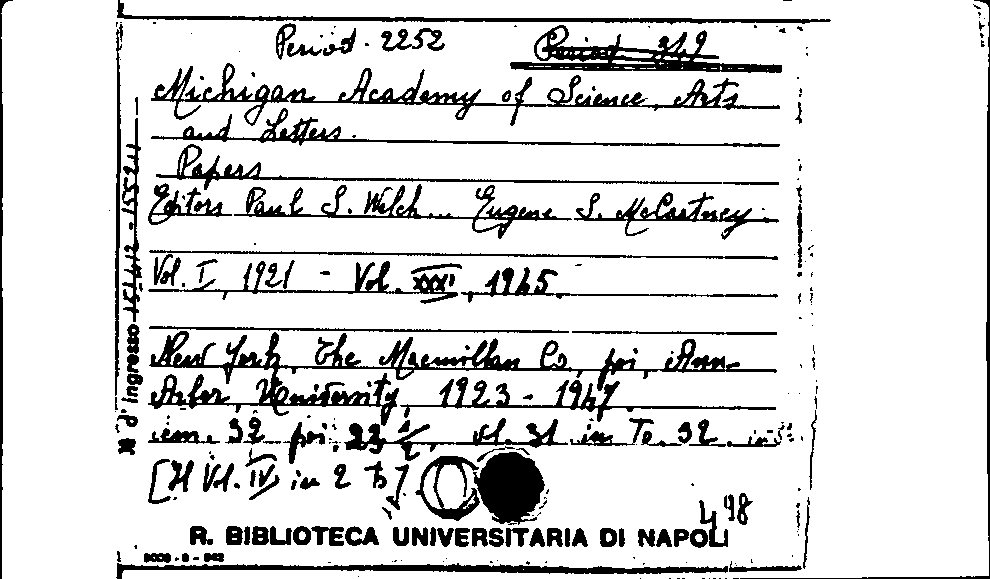 Period. 2252 Period 349
Michigan Academy of Science, Arts
and Letters.
Papers
Editors Paul S. Welch... Eugene S. McCartney.
Vol. I, 1921 - Vol. XXXI, 1945.
New York, The Macmillan Co, poi, Ann-
Arbor, University, 1923 - 1947.
cm. 32 poi, 23 1/2, vl. 31 in To. 32.
[Il Vol. IV in 2 To]
498
R. BIBLIOTECA UNIVERSITARIA DI NAPOLI
N d'Ingresso